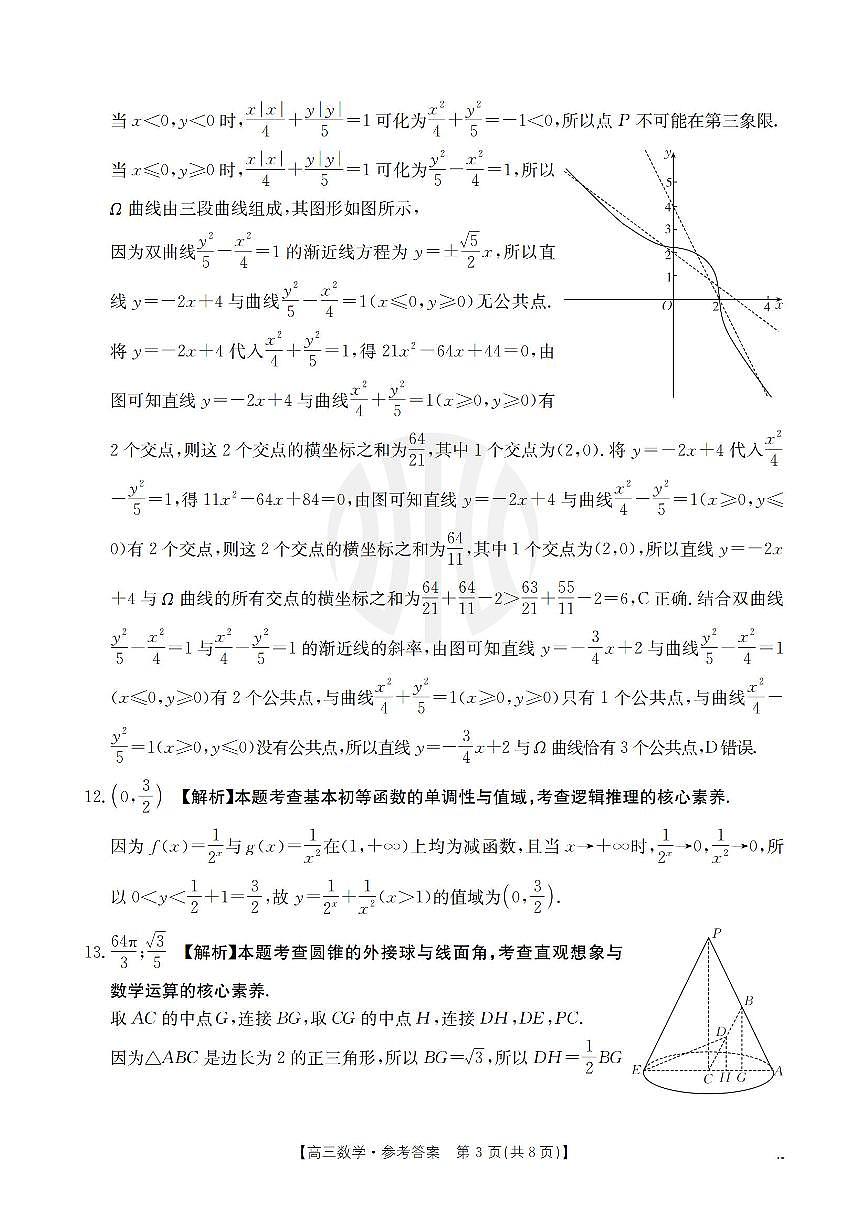 当 x<0,y<0 时,x|x|/4+y|y|/5=1 可化为 x²/4+y²/5=-1<0,所以点 P 不可能在第三象限.
当 x≤0,y≥0 时,x|x|/4+y|y|/5=1 可化为 y²/5-x²/4=1,所以
Ω 曲线由三段曲线组成,其图形如图所示,
因为双曲线 y²/5-x²/4=1 的渐近线方程为 y=±√5/2 x,所以直
线 y=-2x+4 与曲线 y²/5-x²/4=1(x≤0,y≥0)无公共点.
将 y=-2x+4 代入 x²/4+y²/5=1,得 21x²-64x+44=0,由
图可知直线 y=-2x+4 与曲线 x²/4+y²/5=1(x≥0,y≥0)有
y
5
4
3
2
1
O
2
4
x
2 个交点,则这 2 个交点的横坐标之和为 64/21,其中 1 个交点为(2,0).将 y=-2x+4 代入 x²/4
-y²/5=1,得 11x²-64x+84=0,由图可知直线 y=-2x+4 与曲线 x²/4-y²/5=1(x≥0,y≤
0)有 2 个交点,则这 2 个交点的横坐标之和为 64/11,其中 1 个交点为(2,0),所以直线 y=-2x
+4 与 Ω 曲线的所有交点的横坐标之和为 64/21+64/11-2>63/21+55/11-2=6,C 正确.结合双曲线
y²/5-x²/4=1 与 x²/4-y²/5=1 的渐近线的斜率,由图可知直线 y=-3/4 x+2 与曲线 y²/5-x²/4=1
(x≤0,y≥0)有 2 个公共点,与曲线 x²/4+y²/5=1(x≥0,y≥0)只有 1 个公共点,与曲线 x²/4-
y²/5=1(x≥0,y≤0)没有公共点,所以直线 y=-3/4 x+2 与 Ω 曲线恰有 3 个公共点,D 错误.
12.(0,3/2) 【解析】本题考查基本初等函数的单调性与值域,考查逻辑推理的核心素养.
因为 f(x)=1/2ˣ 与 g(x)=1/x² 在(1,+∞)上均为减函数,且当 x→+∞时,1/2ˣ→0,1/x²→0,所
以 0<y<1/2+1=3/2,故 y=1/2ˣ+1/x²(x>1)的值域为(0,3/2).
13. 64π/3;√3/5 【解析】本题考查圆锥的外接球与线面角,考查直观想象与
数学运算的核心素养.
取 AC 的中点 G,连接 BG,取 CG 的中点 H,连接 DH,DE,PC.
因为△ABC 是边长为 2 的正三角形,所以 BG=√3,所以 DH=1/2 BG
P
B
D
E
C
H
G
A
【高三数学·参考答案 第 3 页(共 8 页)】